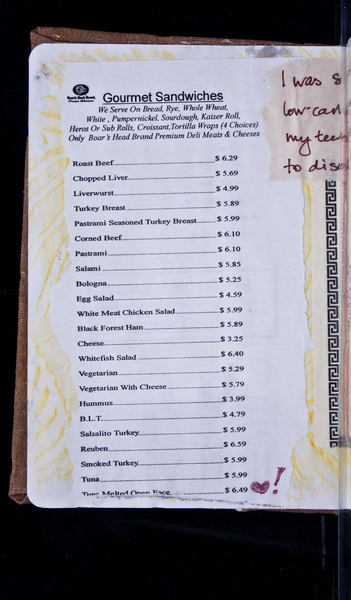 Boar's Head Brand
Gourmet Sandwiches
We Serve On Bread, Rye, Whole Wheat,
White , Pumpernickel, Sourdough, Kaiser Roll,
Heros Or Sub Rolls, Croissant,Tortilla Wraps (4 Choices)
Only Boar's Head Brand Premium Deli Meats & Cheeses
Roast Beef $ 6.29
Chopped Liver $ 5.69
Liverwurst $ 4.99
Turkey Breast $ 5.89
Pastrami Seasoned Turkey Breast $ 5.99
Corned Beef $ 6.10
Pastrami $ 6.10
Salami $ 5.85
Bologna $ 5.25
Egg Salad $ 4.59
White Meat Chicken Salad $ 5.99
Black Forest Ham $ 5.89
Cheese $ 3.25
Whitefish Salad $ 6.40
Vegetarian $ 5.29
Vegetarian With Cheese $ 5.79
Hummus $ 3.99
B.L.T. $ 4.79
Salsalito Turkey $ 5.99
Reuben $ 6.59
Smoked Turkey $ 5.99
Tuna $ 5.99
Tuna Melted Open Face $ 6.49 !
I was
low-
my
to